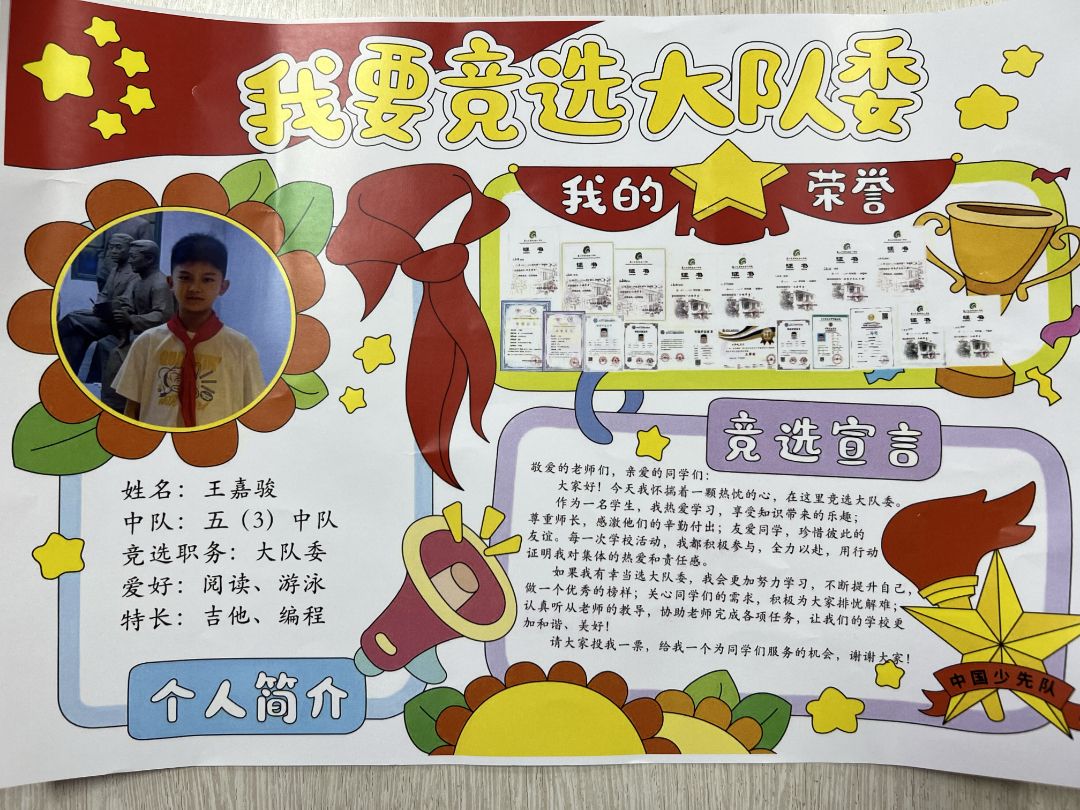 我要竞选大队委
我的
荣誉
姓名：王嘉骏
中队：五（3）中队
竞选职务：大队委
爱好：阅读、游泳
特长：吉他、编程
个人简介
竞选宣言
敬爱的老师们，亲爱的同学们：
大家好！今天我怀揣着一颗热忱的心，在这里竞选大队委。
作为一名学生，我热爱学习，享受知识带来的乐趣；
尊重师长，感激他们的辛勤付出；友爱同学，珍惜彼此的
友谊。每一次学校活动，我都积极参与，全力以赴，用行动
证明我对集体的热爱和责任感。
如果我有幸当选大队委，我会更加努力学习，不断提升自己，
做一个优秀的榜样；关心同学们的需求，积极为大家排忧解难；
认真听从老师的教导，协助老师完成各项任务，让我们的学校更
加和谐、美好！
请大家投我一票，给我一个为同学们服务的机会，谢谢大家！
中国少先队